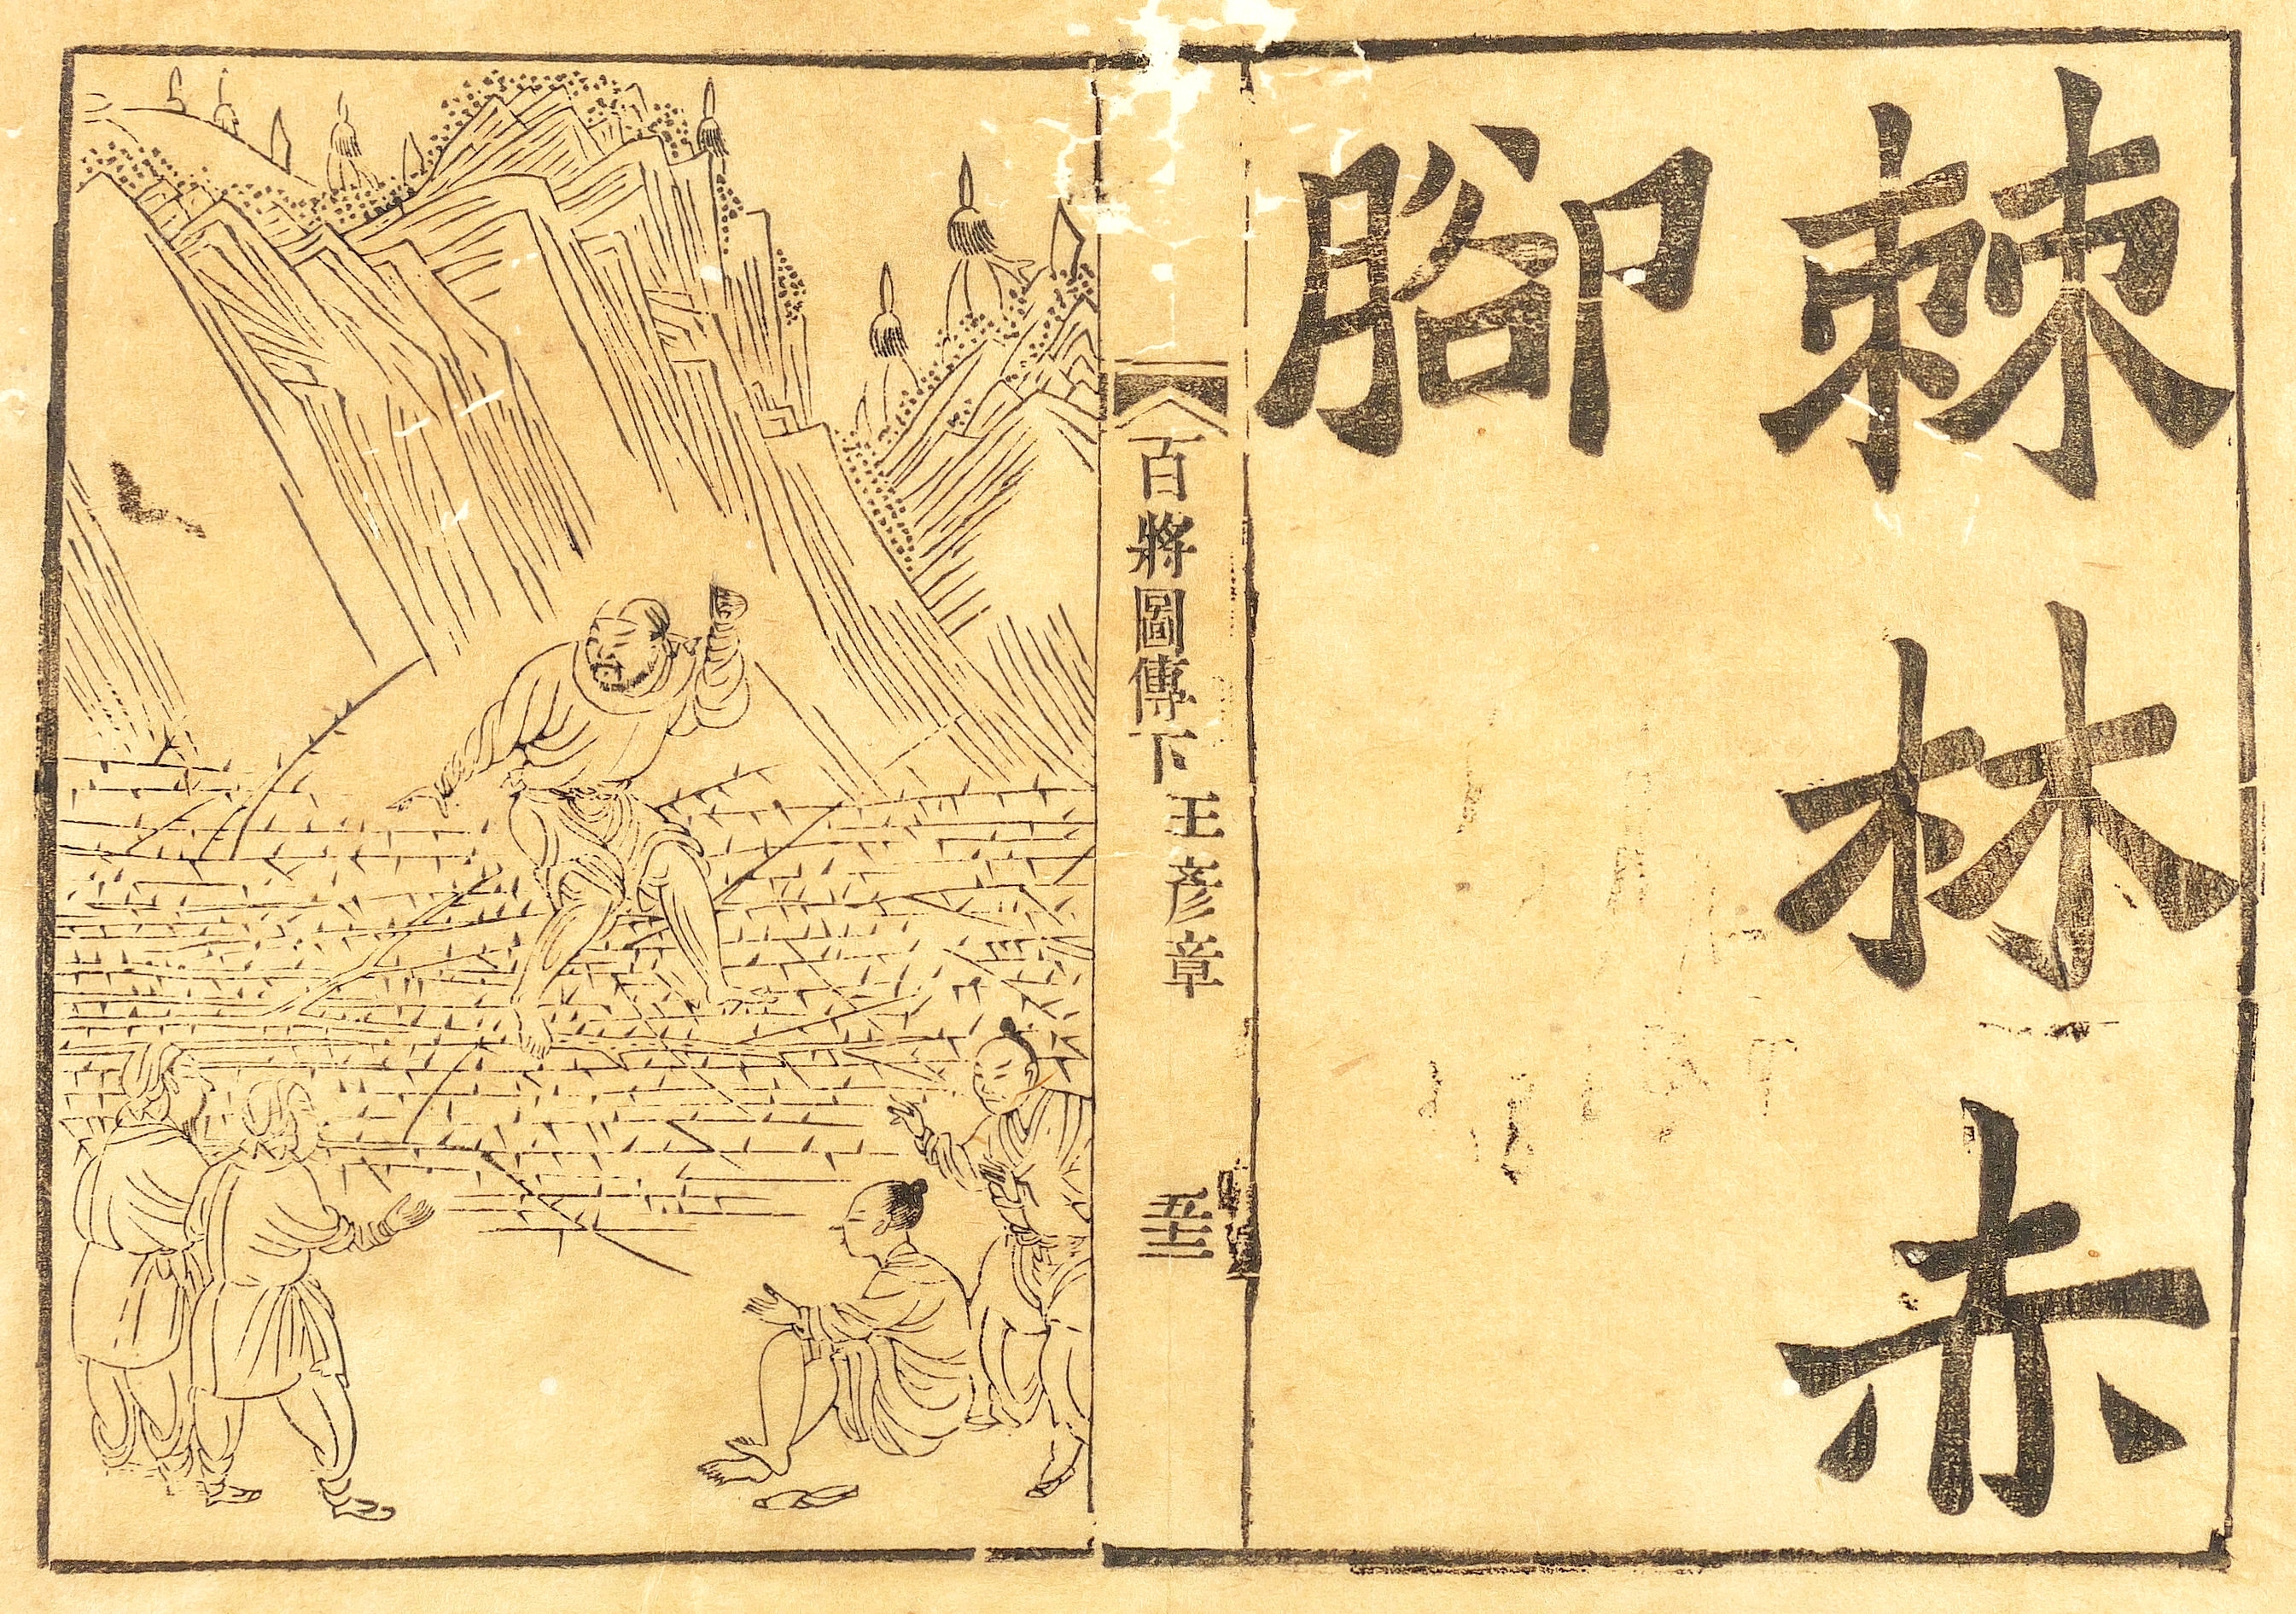 棘林赤
腳
百將圖傳下 王彥章 五十三